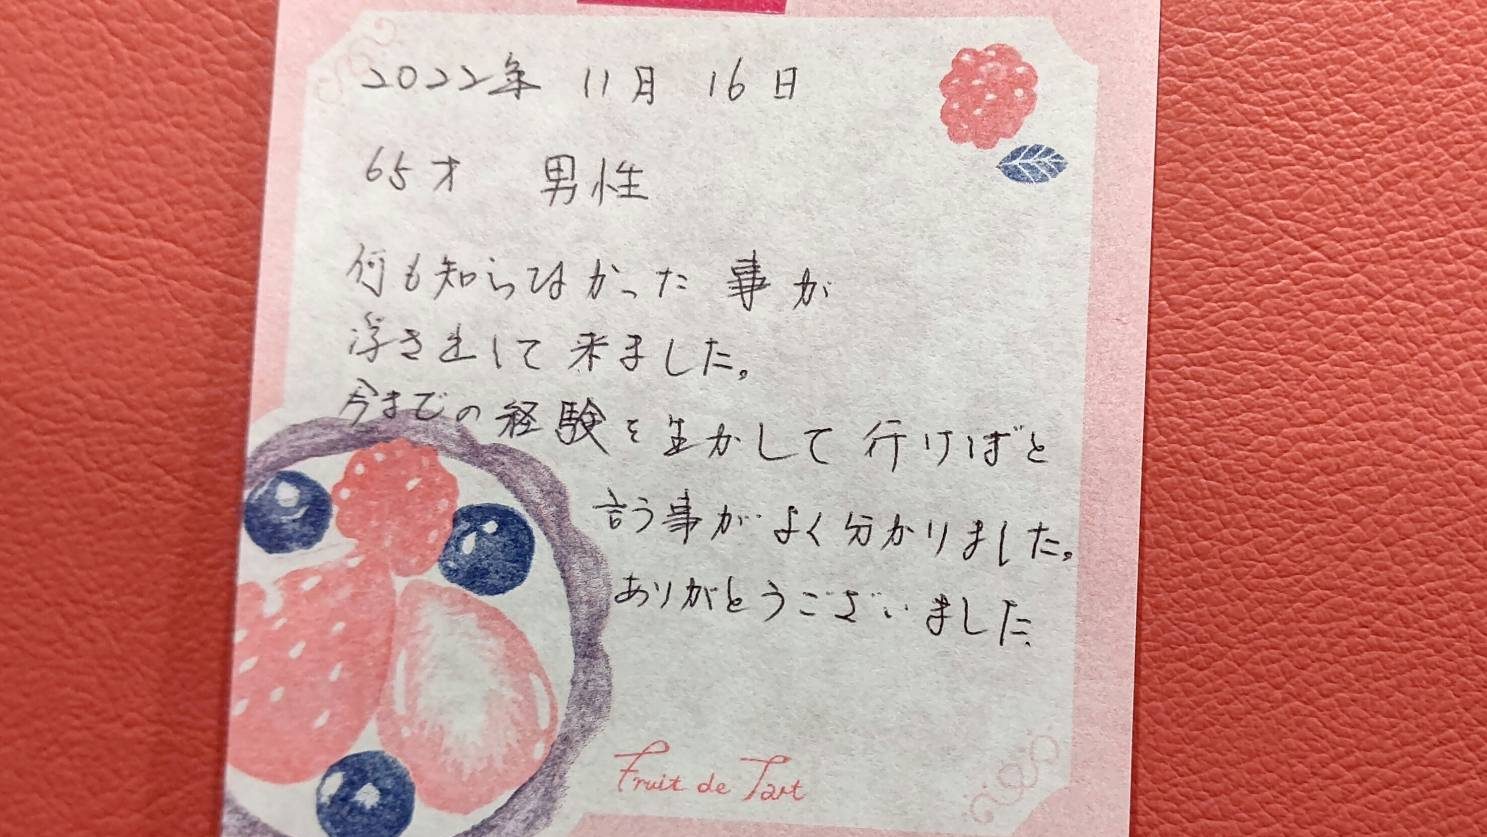 2022年 11月 16日
65才 男性
何も知らなかった事が
浮き出して来ました。
今までの経験を生かして行ければと
言う事がよく分かりました。
ありがとうございました
Fruit de Tart